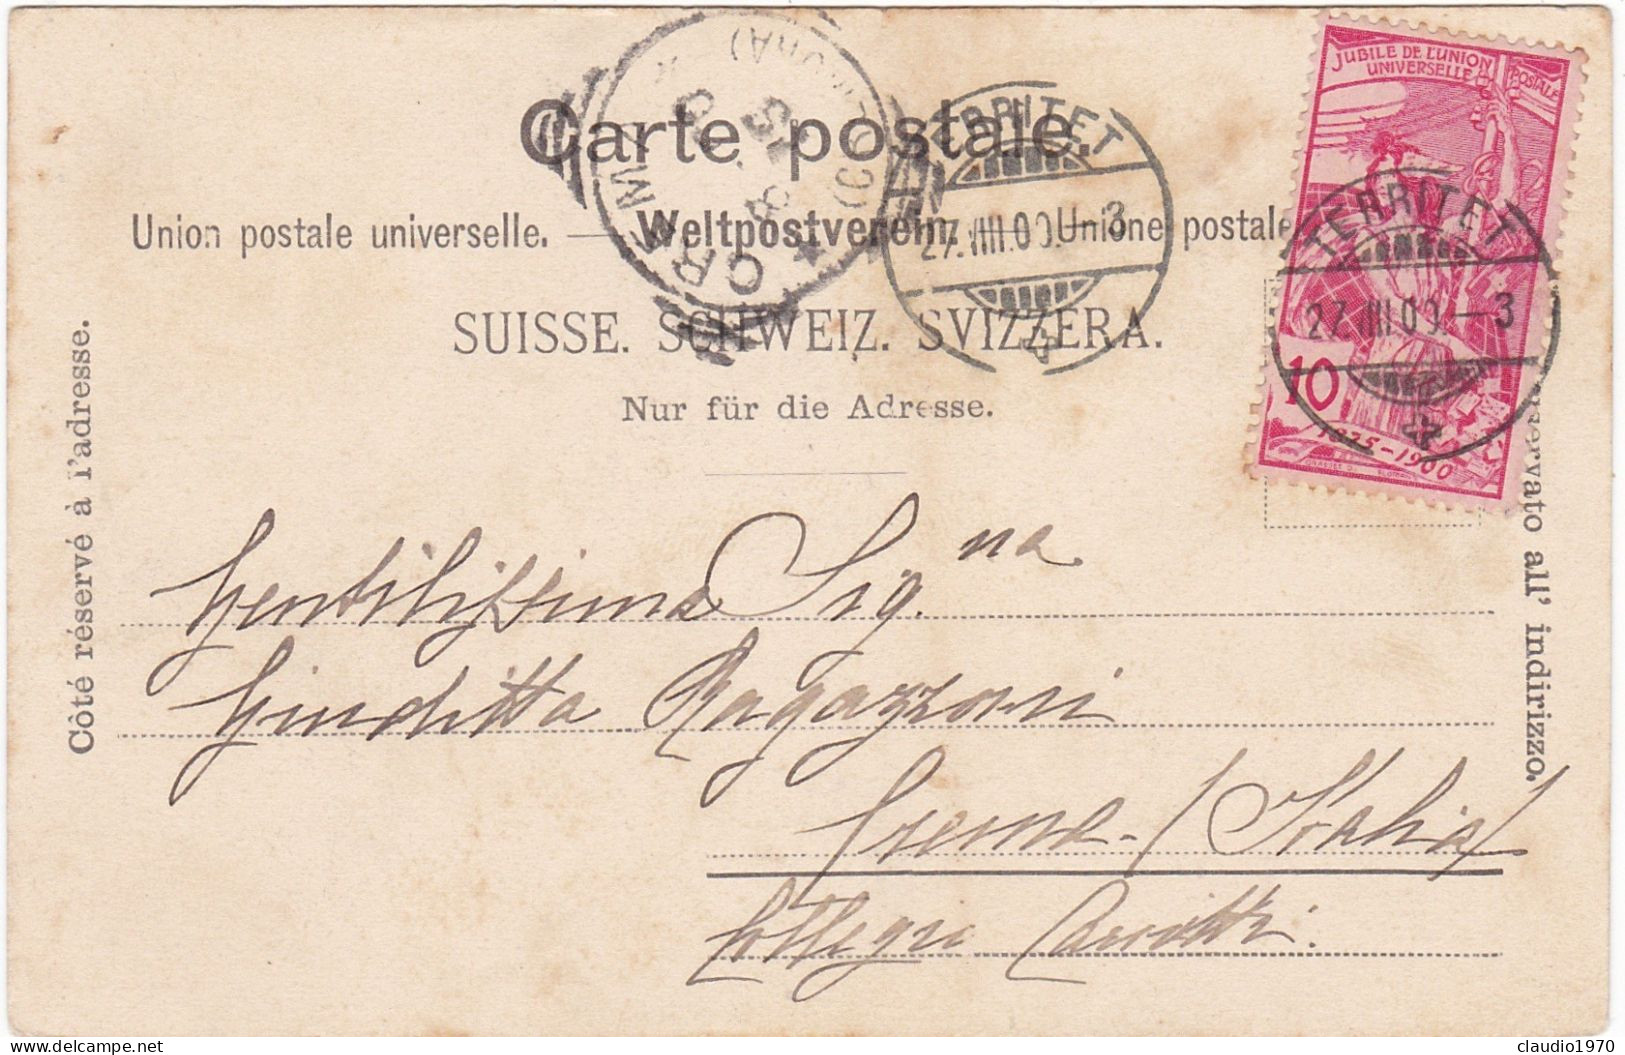 Carte postale.
Union postale universelle. — Weltpostverein. — Unione postale
SUISSE. SCHWEIZ. SVIZZERA.
Nur für die Adresse.
Côté réservé à l'adresse.
all' indirizzo.
JUBILÉ DE L'UNION
POSTALE
UNIVERSELLE
10
1875-1900
TERRITET
27.VIII.00.—3
TERRITET
27.VIII.00.—3
CREMA
Gentilissima Sig.na
Giuditta Ragazzoni
Crema - (Italia)
Collegio
claudio1970